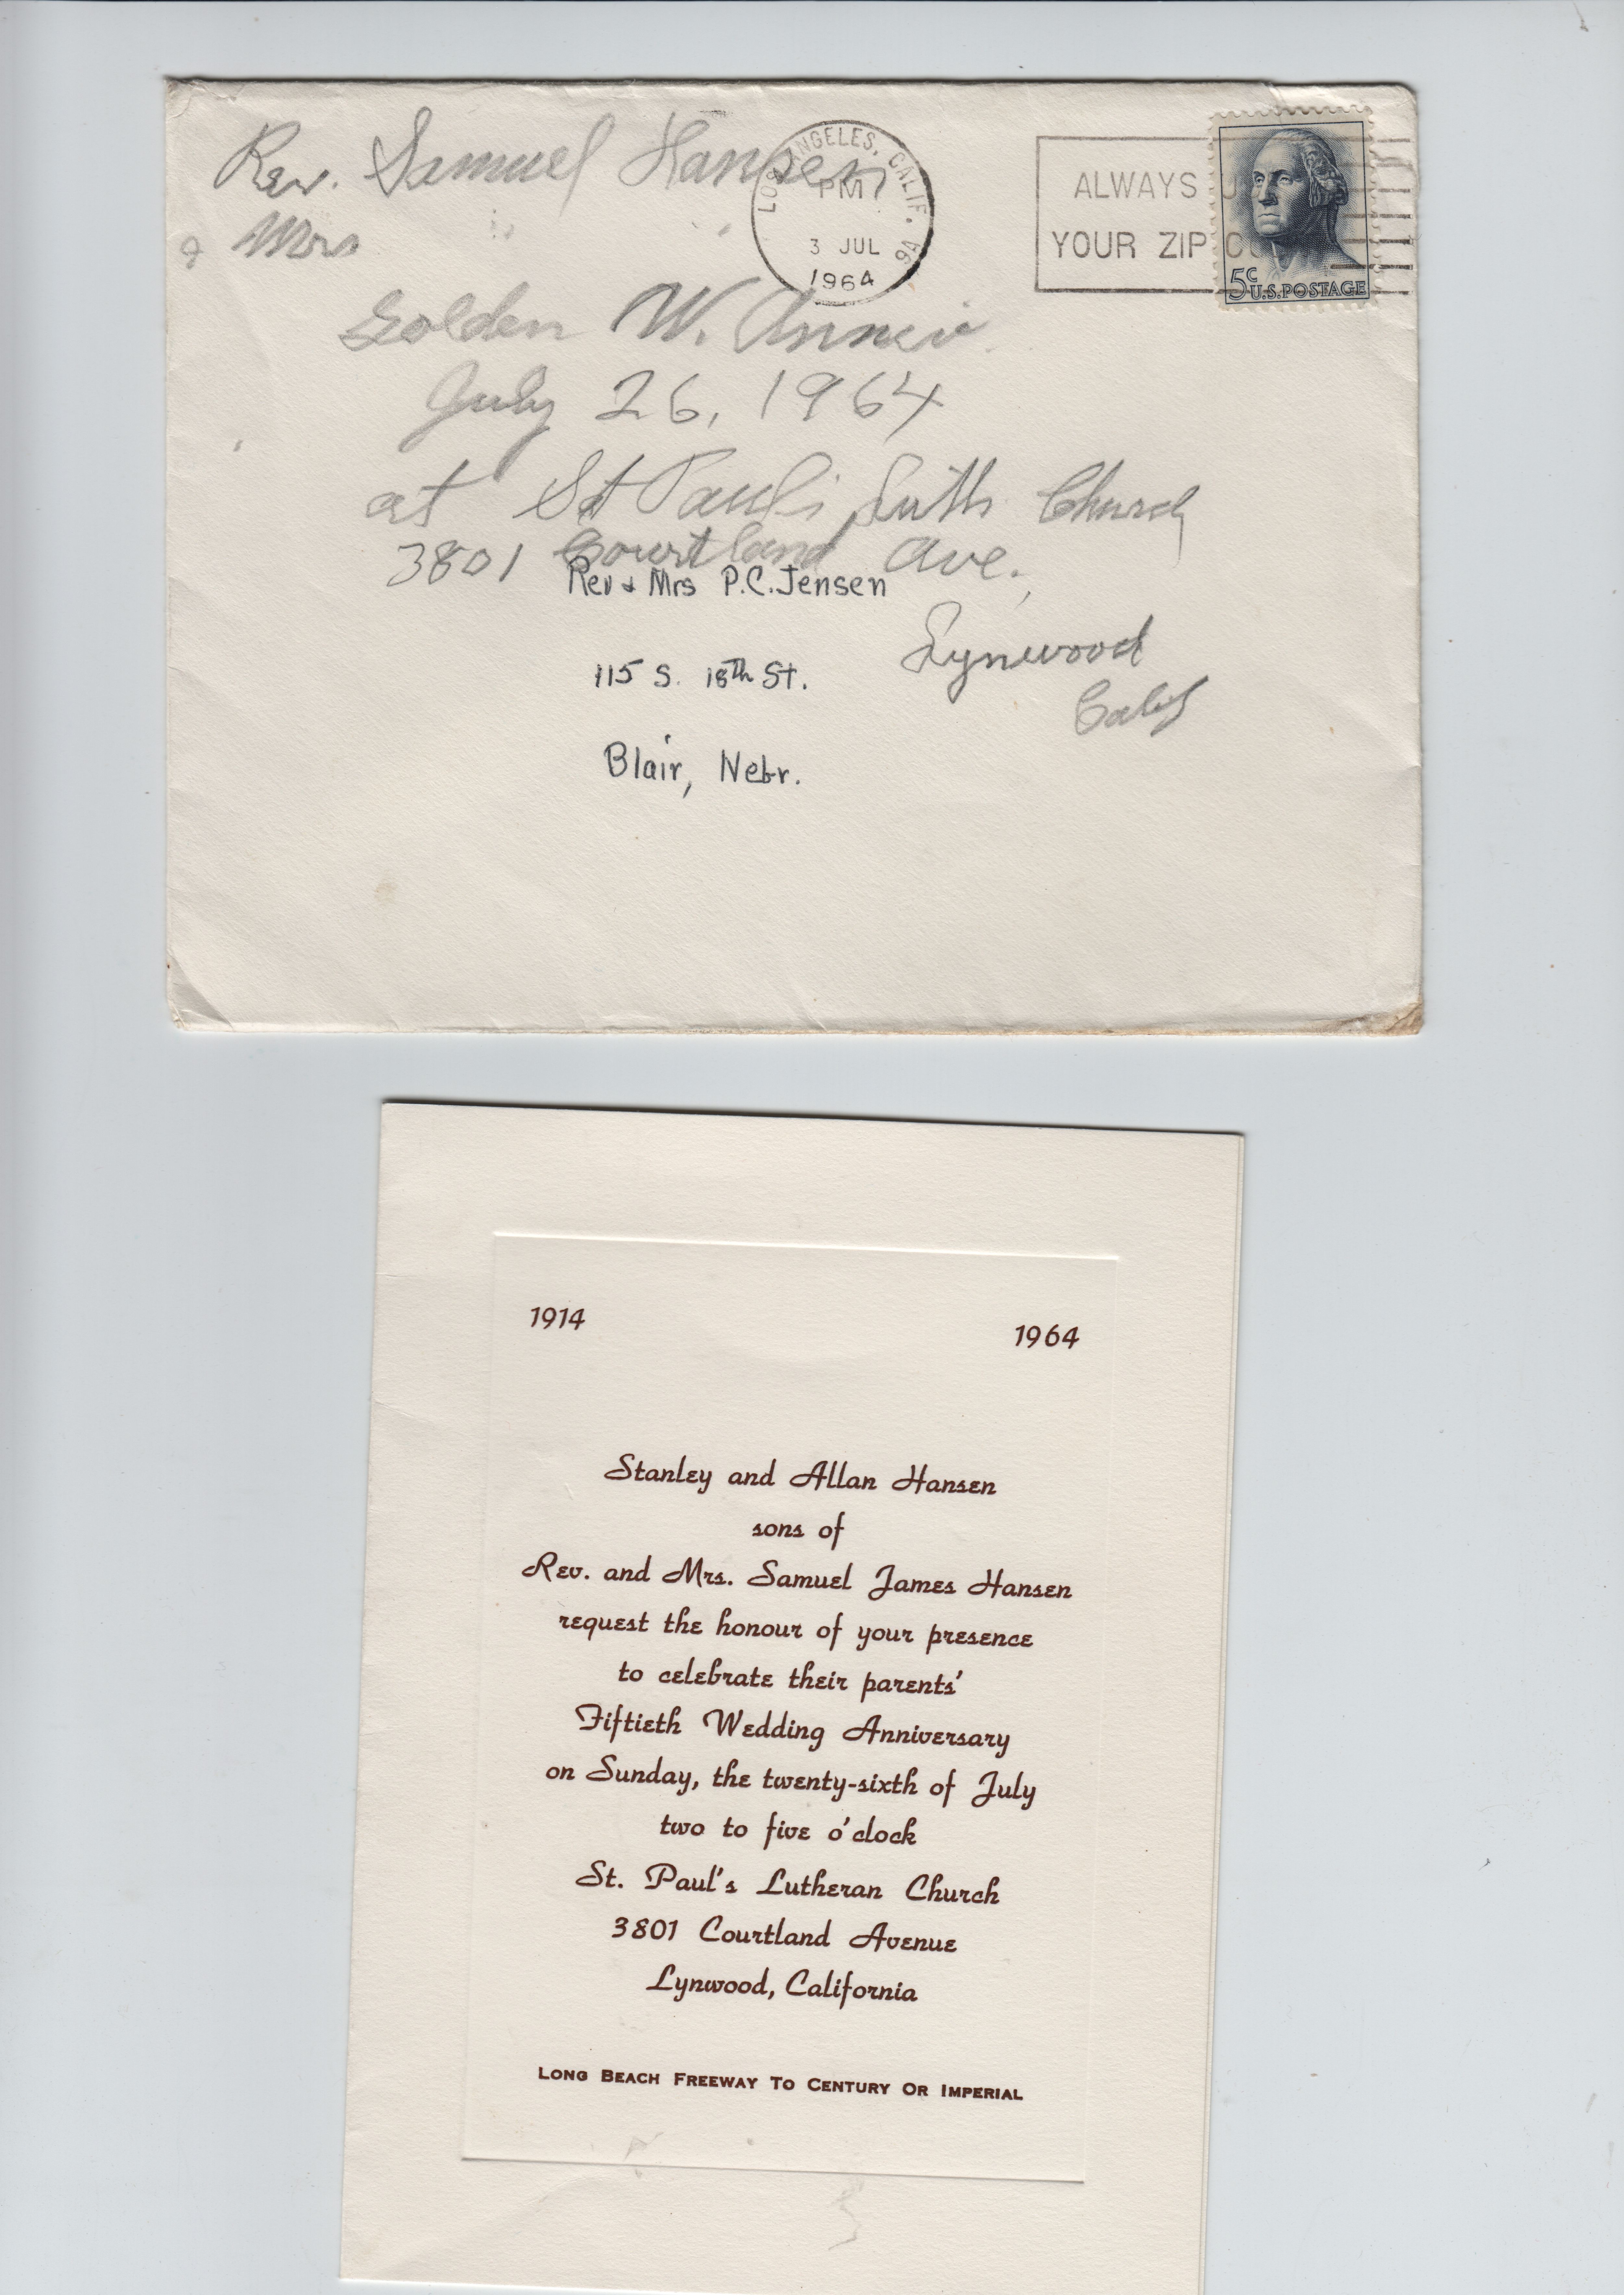 Rev. Samuel Hansen
& Mrs " "
LOS ANGELES, CALIF. 9A
PM
3 JUL
1964
ALWAYS U
YOUR ZIP CO
5c
U.S. POSTAGE
Golden W. Anniv.
July 26, 1964
at St Paul's Luth Church
3801 Courtland Ave.,
Lynwood
Calif
Rev & Mrs P.C. Jensen
115 S. 18th St.
Blair, Nebr.
1914 1964
Stanley and Allan Hansen
sons of
Rev. and Mrs. Samuel James Hansen
request the honour of your presence
to celebrate their parents'
Fiftieth Wedding Anniversary
on Sunday, the twenty-sixth of July
two to five o'clock
St. Paul's Lutheran Church
3801 Courtland Avenue
Lynwood, California
LONG BEACH FREEWAY TO CENTURY OR IMPERIAL